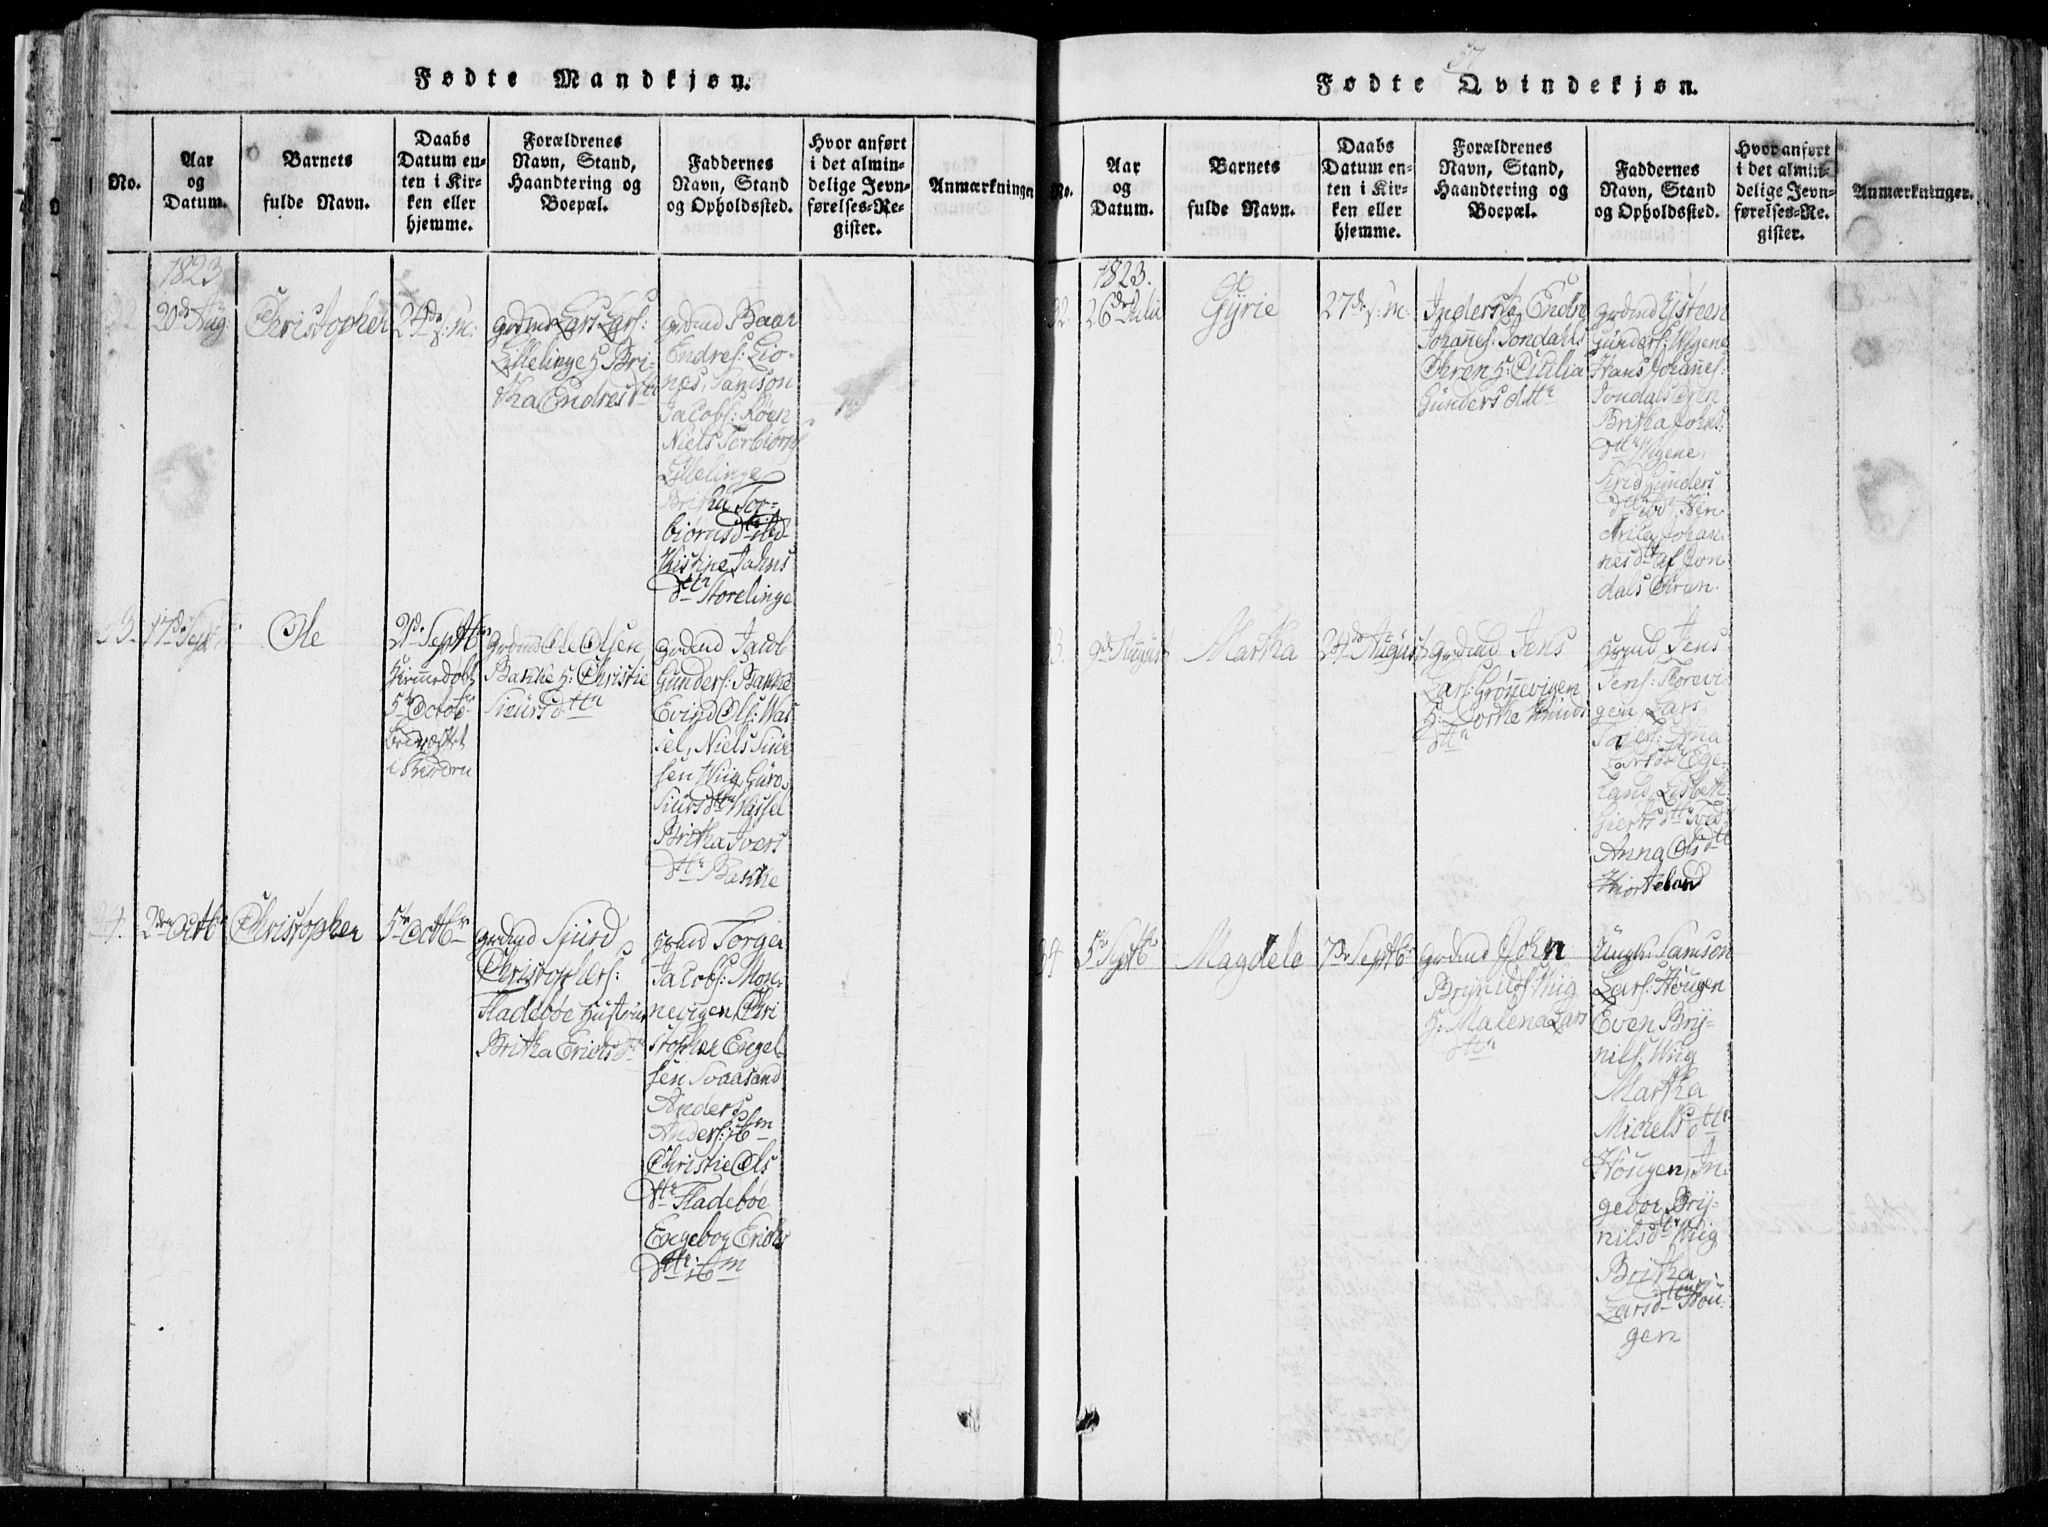 Fødte Mandkjøn.
No.
Aar
og
Datum.
Barnets
fulde Navn.
Daabs
Datum en-
ten i Kir-
ken eller
hjemme.
Forældrenes
Navn, Stand,
Haandtering og
Boepæl.
Faddernes
Navn, Stand
og Opholdssted.
Hvor anført
i det almin-
delige Jevn-
førelses-Re-
gister.
Anmærkninger
1823
20de Aug
Christopher
24de
Lars Lars:
Lillelinge H Bri-
tha Endresdtr
Endres: Lio-
nes, Samson
Jacobs: Røen
Niels Torbiørns
Lillelinge
Britha Tor-
biørnsdtr ibd
Kistine Jahns
dttr Storelinge
17de Sept
Ole
21de Septbr
hiemmedøbt
5te Octobr
Ole Olsen
Bakke H: Christie
Siursdttr
Jacob
Gunders: Bakke
Evind Ols: Was-
sel, Niels Siur-
sen Wiig, Guro
Siursdttr Wassel
Britha Ivers
dttr Bakke
24.
2den Octbr
Christopher
5te Octbr
Sjurd
Christophers:
Fladebøe Hustrue
Britha Erichsdttr
Torger
Jacobs: Mon-
nevigen, Chri
stopher Engel-
sen Svaasand
Anders
Anders: ibm
Christie Ols
dttr Fladebøe
Engebor Erichs
dttr: ibm
57
Fødte Qvindekjøn.
No.
Aar
og
Datum.
Barnets
fulde Navn.
Daabs
Datum en-
ten i Kir-
ken eller
hjemme.
Forældrenes
Navn, Stand,
Haandtering og
Boepæl.
Faddernes
Navn, Stand
og Opholdssted.
Hvor anført
i det almin-
delige Jevn-
førelses-Re-
gister.
Anmærkninger.
1823.
32.
26de Julii
Gyrie
27de
Inderste Endre
Johannes: Jondahls
Øhren H: Cicilia
Gundersdttr
Ysteen
Gunders: Wigene
Hans Johannes:
Jondals Øren
Britha Johns:
dtr Wigene,
Sirid Gunders
Johan-
nesdtr af Jon-
dals Øran.
9de August
Martha
24de August
Jens
Lars: Grønnevigen
H: Dorthe Knuds
dttr
Jens
Jens: Thorevi-
gen Lars
Larsdtr Ege-
land, Lisbeth
Anna Olsdtr
Hiorteland
34
5te Septbr
Magdele
7de Septbr
John
Brynilds: Wiig
H: Malena Lars
dttr
Ungk: Samson
Lars: Hougen
Even Bry-
nils: Wiig
Martha
Michelsdttr
Hougen, In-
gebor Bry-
nilsdtr Wiig
Britha
Larsdtr Hou-
gen